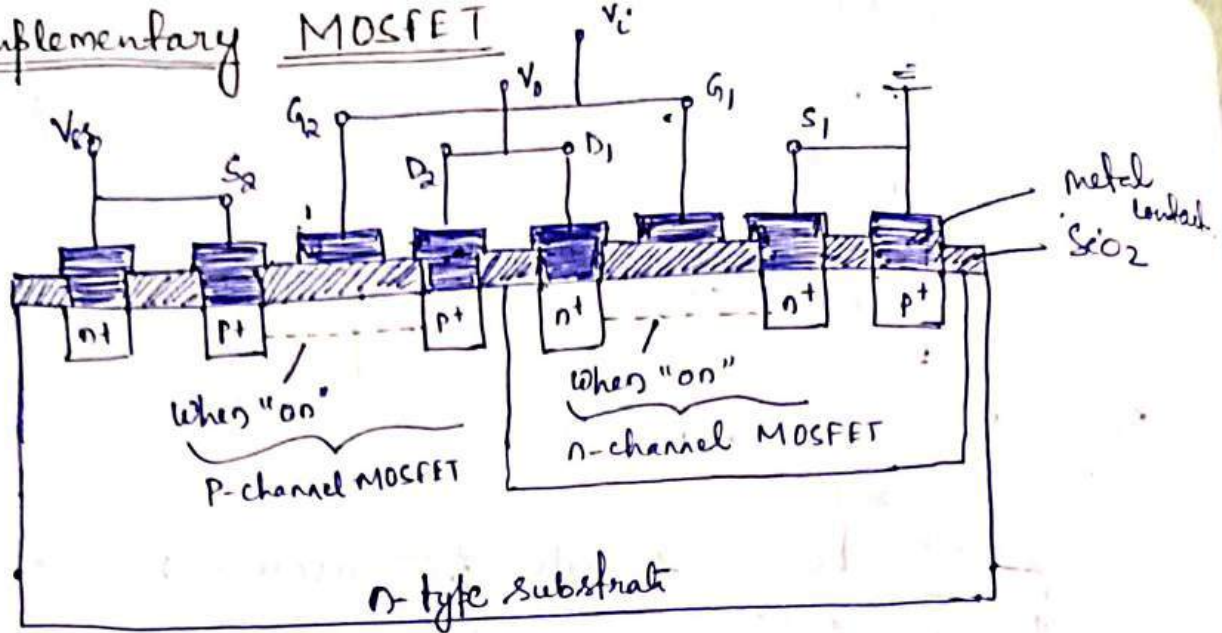 mplementary MOSFET
Vi
V0
G2
G1
S1
VSS
S2
D2
D1
metal
contact
SiO2
n+
p+
p+
n+
n+
p+
When "on"
When "on"
P-channel MOSFET
n-channel MOSFET
n-type substrate